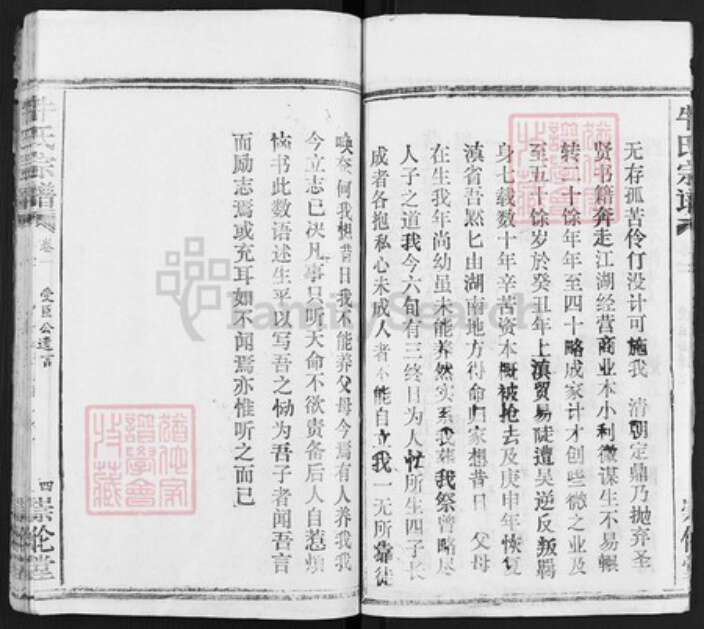 牛氏宗譜
无存孤苦伶仃没计可施我　清朝定鼎乃抛弃圣
贤书籍奔走江湖经营商业本小利微谋生不易辗
转二十馀年年至四十略成家计才创些微之业及
至五十馀岁於癸丑年上滇贸易陡遭吴逆反叛羁
身七载数十年辛苦资本概被抢去及庚申年恢复
滇省吾黙匕由湖南地方得命归家想昔日　父母
在生我年尚幼虽未能养然实系我葬我祭曾略尽
人子之道我今六旬有三终日为人忙所生四子长
成者各抱私心未成人者不能自立我一无所靠徒
唤奈何我想昔日我不能养父母今焉有人养我我
今立志已决凡事只听天命不欲责备后人自惹烦
恼书此数语述生平以写吾之恸为吾子者闻吾言
而励志焉或充耳如不闻焉亦惟听之而已
牛氏宗譜
卷一
爱臣公遗言
四
崇伦堂
FamilySearch